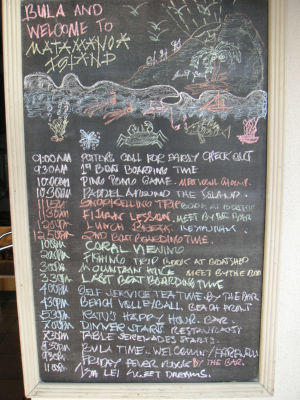 BULA AND
WELCOME TO
MATAMANOA
ISLAND
09:00AM PORTERS CALL FOR EARLY CHECK OUT
9:30AM 1st BOAT BOARDING TIME
10:00AM PING PONG GAME.
10:30AM PADDEL AROUND THE ISLAND
11:15AM SNORKELLING TRIP BOOK AT BOATSHED
11:30AM FIJIAN LESSON MEET BY THE BAR
12:30PM LUNCH BREAK
12:50PM 2ND BOAT BOARDING TIME.
1:00PM CORAL VIEWING
2:00PM FISHING TRIP BOOK AT BOATSHED
3:00PM MOUNTAIN HIKE MEET BY THE BAR
3:30PM LAST BOAT BOARDING TIME
4:00PM SELF SERVICE TEA TIME BY THE BAR
4:30PM BEACH VOLLEYBALL. BEACH FRONT
5:30PM HAPPY HOUR. BAR
7:00PM DINNER STARTS RESTAURANT
7:30PM TABLE SERENADES STARTS.
8:30PM BULA TIME.. WELCOMING/FAREWELL
9:30PM FRIDAY FEVER ROCK BY THE BAR.
11:00PM SWEET DREAMS..